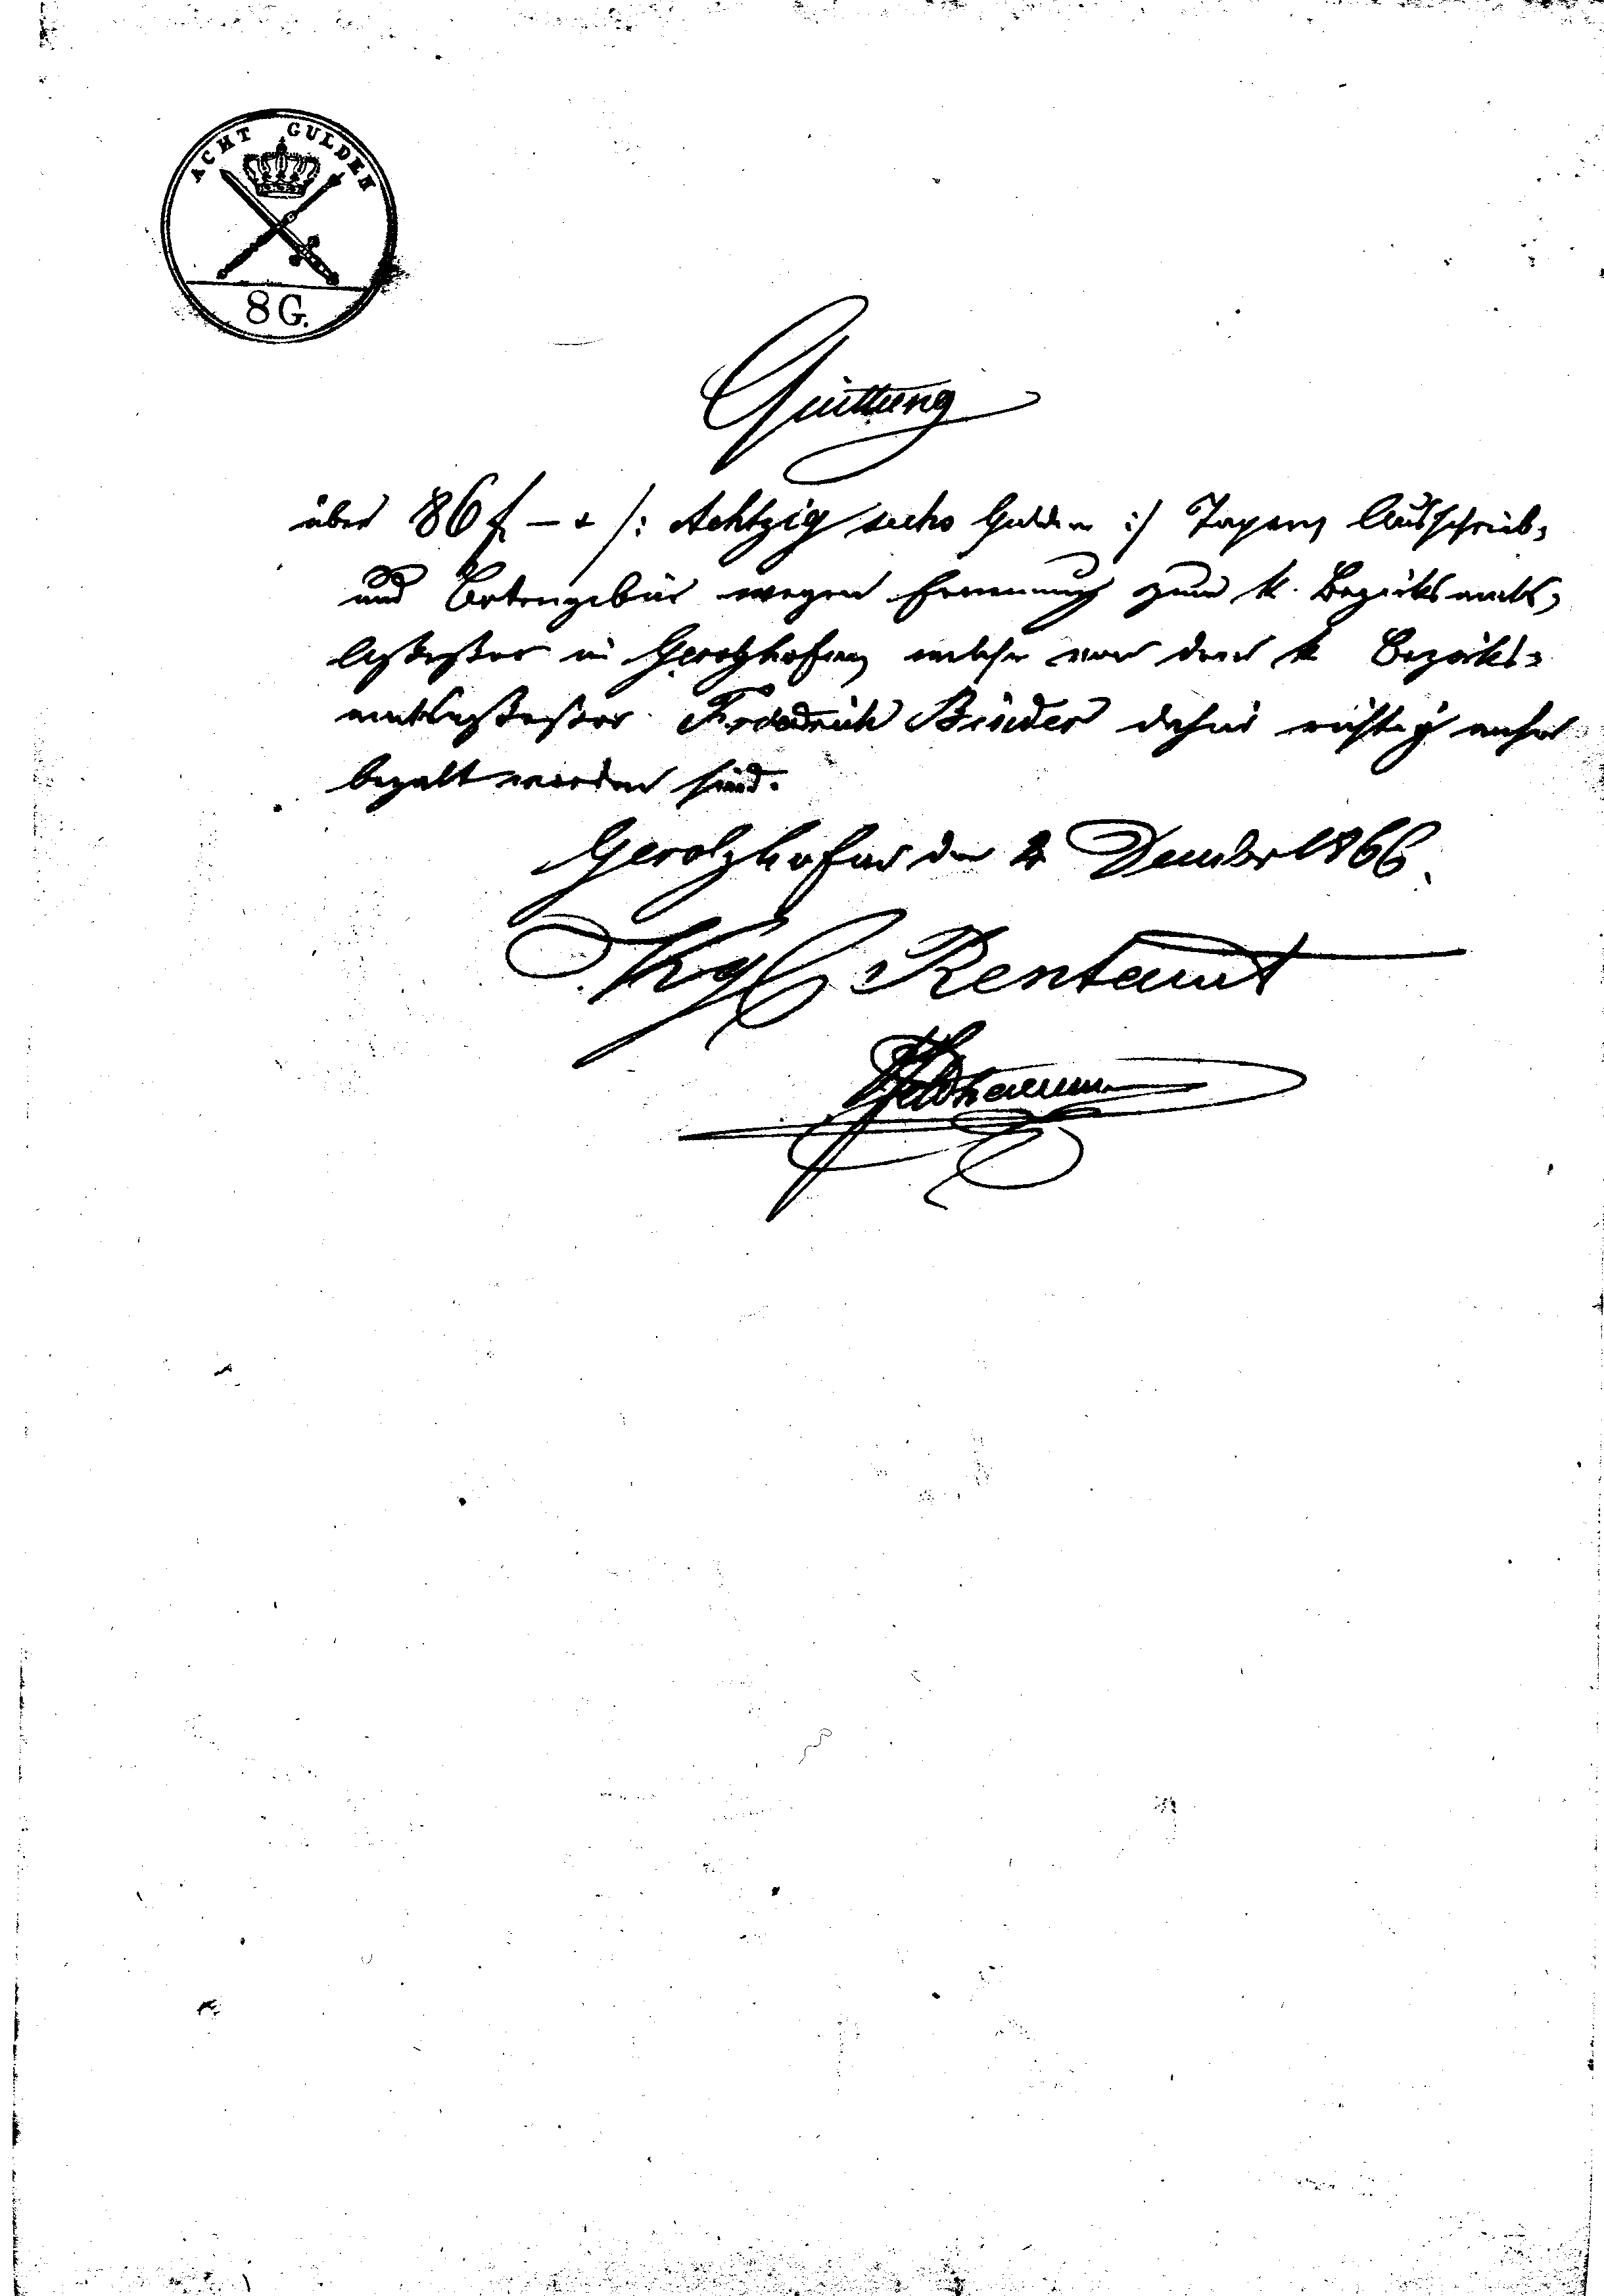 ACHT GULDEN
8 G.
Quittung
über 86 f – x /: Achtzig sechs Gulden :/ Taxen, Ausschreib-
und Botengebür wegen Ernennung zum k. Bezirksamts-
Assessor in Gerolzhofen, welche von dem k Bezirks-
amtsassessor Friedrich Binder dahier richtig anher
bezalt worden sind.
Gerolzhofen den 2 Dezember 1866.
Kgl Rentamt